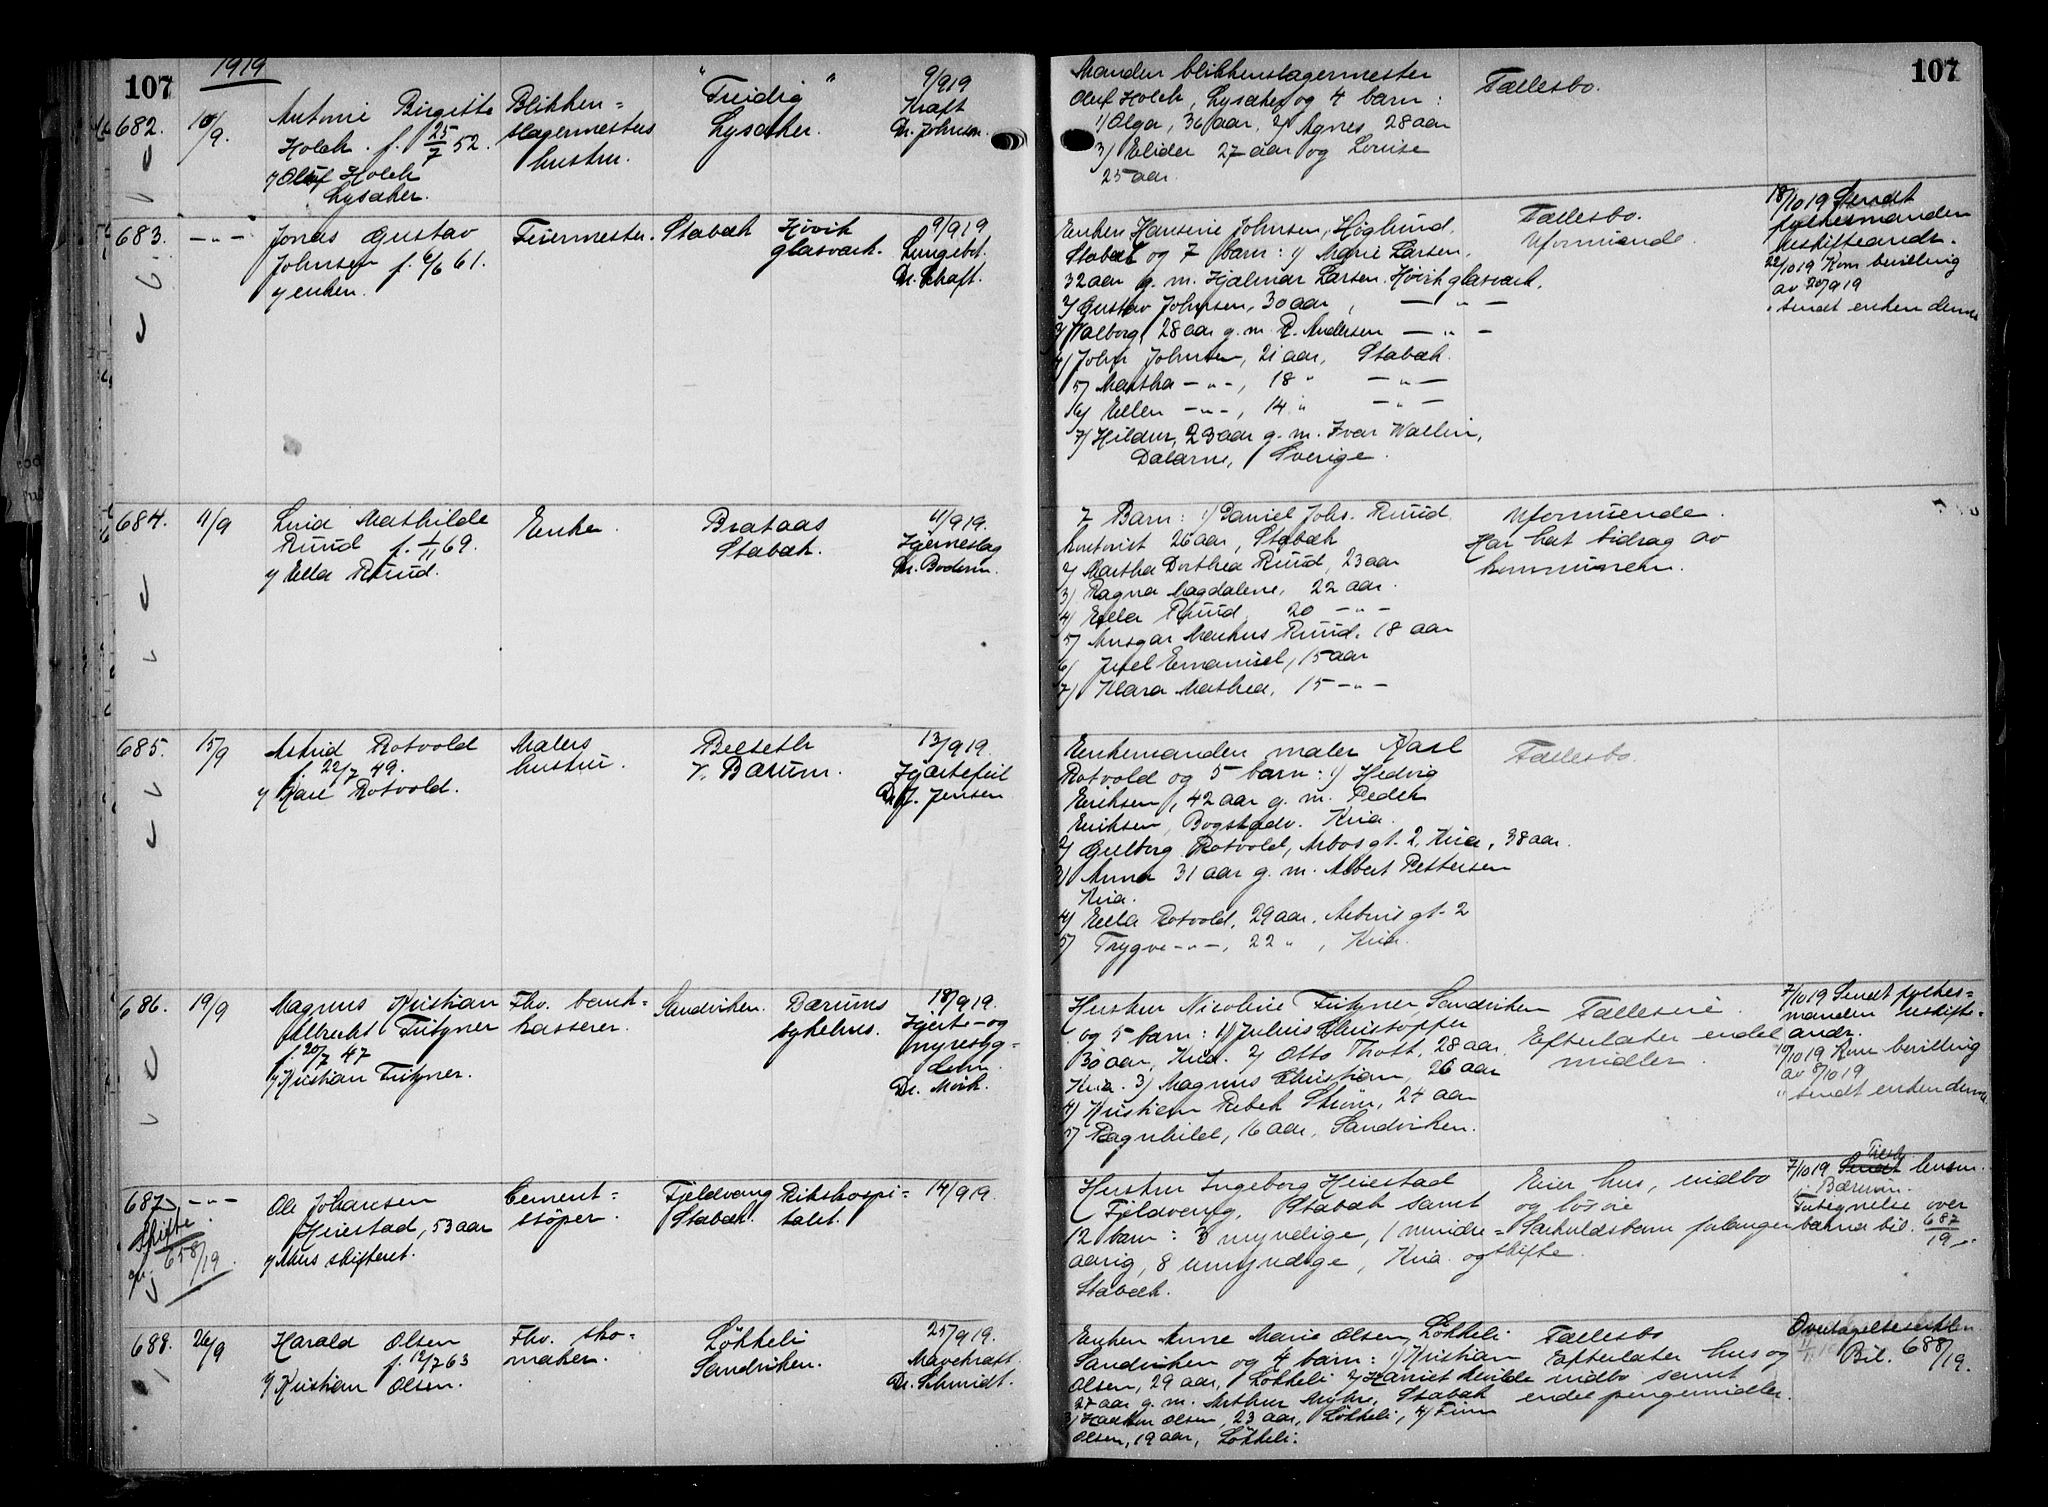 107
1919
682.
10/9.
Antonie Birgitte
Holch. f. 25/7 52.
v/ Oluf Holch
Lysaker.
Blikken=
slagermesters
hustru.
"Freidig"
Lysaker.
9/919
Kraft
Dr. Johnsen.
683.
— " —
Jonas Gustav
Johnsen f. 6/6 61.
v/ enken.
Feiermester.
Stabæk
Høvik
glasværk.
9/919
Lungebet.
Dr. Schaft.
684.
11/9
Lina Mathilde
Ruud f. 1/11 69.
v/ Ella Ruud.
Enke.
Brataas
Stabæk.
11/919.
Hjerneslag
Dr.
685.
15/9
Astrid Rotvold
f. 22/7 49.
v/ Kare Rotvold.
Malers
hustru.
Belseth
V. Bærum.
13/919.
Hjertefeil
Dr. J. Jensen
686.
19/9
Magnus Kristian
Albrecht Fritzner
f. 20/7 47
v/ Kristian Fritzner.
Fhv. bank=
kasserer.
Sandviken.
Bærums
sykehus.
18/919.
Hjerte- og
nyresyg=
dom.
Dr. Mørk.
687
— " —
Skifte
658/19.
Ole Johansen
Heiestad, 53 aar
v/ skifteret.
Cement=
støper.
Fjeldveng
Stabæk.
Rikshospi=
talet.
14/919.
688.
26/9
Harald Olsen
f. 12/7 63
v/ Kristian Olsen.
Fhv. sko=
maker.
Løkkeli
Sandviken.
25/919.
Mavekræft.
Dr. Schmidt.
107
Manden blikkenslagermester
Oluf Holch, Lysaker og 4 barn:
1) Olga, 36 aar, 2) Agnes, 28 aar
3) Elida 27 aar og Louise
25 aar.
Fællesbo.
Enken Hansine Johnsen, Høglund,
Stabæk og 7 barn: 1) Marie Larsen,
32 aar g. m. Hjalmar Larsen, Høvik glasværk.
2) Gustav Johnsen, 30 aar, — " —
3) Valborg, 28 aar g. m. R. Andersen — " —
4) John Johnsen, 21 aar, Stabæk.
5) Martha — " —, 18 " — " —
6) Ellen — " —, 14 " — " —
7) Hildur, 23 aar g. m. Ivar Wallin,
Dalarne, Sverige.
Fællesbo.
Uformuende.
18/10 19 Sendt
fylkesmanden
uskifteandr.
22/10 19 Kom bevilling
av 20/919
" sendt enken denne
7 Barn: 1) Daniel Johs. Ruud,
26 aar, Stabæk
2) Martha Dorthea Ruud, 23 aar
3) Ragna Magdalene, 22 aar.
4) Ella Ruud, 20 — " —
5) Ansgar Ruud, 18 aar
6) Emanuel, 15 aar
7) Klara Mathea, 15 — " —
Uformuende.
Har hat bidrag av
kommunen.
Enkemanden maler Karl
Rotvold og 5 barn: 1) Hedvig
Eriksen, 42 aar g. m. Peder
Eriksen, Bogstadv. Kria.
2) Gulborg Rotvold, gt. 2, Kria, 38 aar.
3) Anna 31 aar g. m. Albert Pettersen
Kria.
4) Ella Rotvold, 29 aar, gt. 2
5) Trygve — " —, 22 ", Kria.
Fællesbo.
Hustru Nicoline Fritzner, Sandviken
og 5 barn: 1) Julius Christopher
30 aar, Kria. 2) Otto Thott, 28 aar.
Kria. 3) Magnus Christian, 26 aar
4) Kristian Rebek Strøm, 24 aar
5) Ragnhild, 16 aar, Sandviken.
Fælleseie.
Efterlater endel
midler.
7/10 19 Sendt fylkes=
manden uskifte=
andr.
10/10 19 Kom bevilling
av 8/10 19
" sendt enken denne
Hustru Ingeborg Heiestad
Fjeldveng, Stabæk samt
12 barn: 3 myndige, 1 mindre=
aarig, 8 umyndige, Kria. og
Stabæk.
Eier hus, indbo
og løsøre
Særkuldsbarn forlanger
skifte.
7/10 19 Tilskr. lensm.
i Bærum.
Tutegnelse over
barna bil. 687/19.
Enken Anne Marie Olsen, Løkkeli
Sandviken og 4 barn: 1) Kristian
Olsen, 29 aar, Løkkeli 2) Harriet Hvilde
27 aar g. m. Arthur Myhre, Stabæk
3) Haakon Olsen, 23 aar, Løkkeli, 4) Finn
Olsen, 19 aar, Løkkeli.
Fællesbo
Efterlater hus og
indbo samt
endel pengemidler.
Overtagelseserklæn
Bil. 688/19.